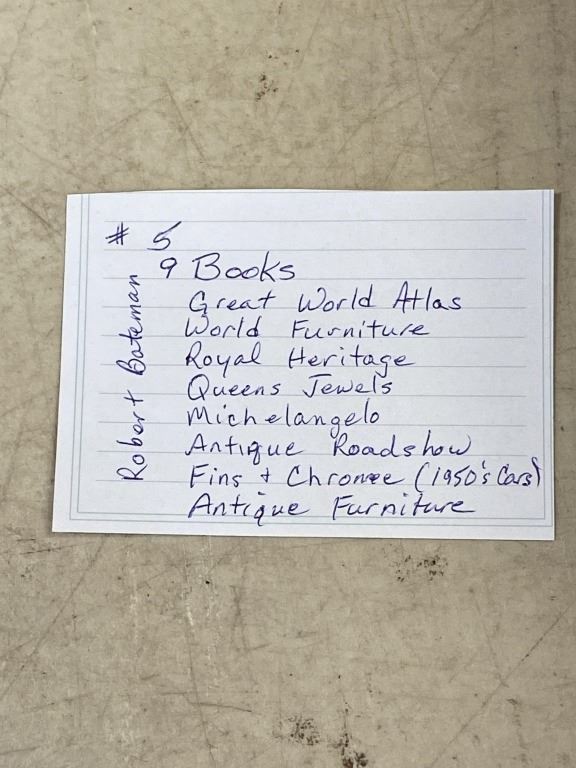 # 5
9 Books
Great World Atlas
World Furniture
Royal Heritage
Queens Jewels
Michelangelo
Antique Roadshow
Fins + Chrome (1950's Cars)
Antique Furniture
Robert Bateman